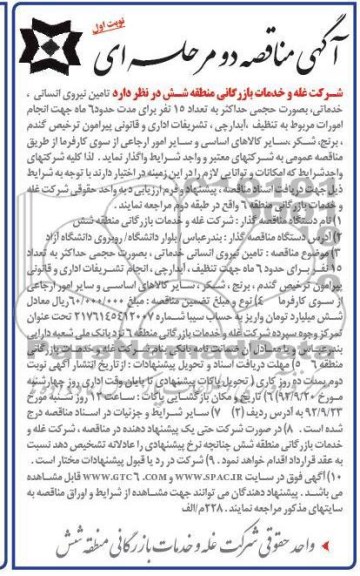 نوبت اول
آگهی مناقصه دو مرحله ای
شرکت غله و خدمات بازرگانی منطقه شش در نظر دارد تامین نیروی انسانی ،
خدماتی، بصورت حجمی حداکثر به تعداد ۱۵ نفر برای مدت حدود ۶ ماه جهت انجام
امورات مربوط به تنظیف ،آبدارچی ، تشریفات اداری و قانونی پیرامون ترخیص گندم
، برنج، شکر ،سایر کالاهای اساسی و سایر امور ارجاعی از سوی کارفرما از طریق
مناقصه عمومی به شرکتهای معتبر و واجد شرایط واگذار نماید . لذا کلیه شرکتهای
واجدشرایط که امکانات و توانایی لازم را در این زمینه در اختیار دارند با توجه به شرایط
ذیل جهت دریافت اسناد مناقصه ، پیشنهاد و فرم ارزیابی به واحد حقوقی شرکت غله
و خدمات بازرگانی منطقه ۶ واقع در طبقه دوم مراجعه نمایند .
۱) نام دستگاه مناقصه گذار : شرکت غله و خدمات بازرگانی منطقه شش
۲) آدرس دستگاه مناقصه گذار : بندرعباس/ بلوار دانشگاه/ روبروی دانشگاه آزاد
۳) موضوع مناقصه : تامین نیروی انسانی خدماتی ، بصورت حجمی حداکثر به تعداد
۱۵ نفر برای حدود ۶ ماه جهت تنظیف ، آبدارچی ، انجام تشریفات اداری و قانونی
پیرامون ترخیص گندم ، برنج ، شکر ، سایر کالاهای اساسی و سایر امور ارجاعی
از سوی کارفرما ۴) نوع و مبلغ تضمین مناقصه : مبلغ ۶۰/۰۰۰/۰۰۰ ریال معادل
شش میلیارد تومان واریز به حساب سیبا شماره ۲۱۷۶۱۴۵۴۱۲۰۰۷ تحت عنوان
تمرکز وجوه سپرده شرکت غله و خدمات بازرگانی منطقه ۶ نزد بانک ملی شعبه دارایی
بندرعباس و یا معادل آن ضمانت نامه بانکی بنام شرکت غله و خدمات بازرگانی
منطقه ۶ ۵) مهلت دریافت اسناد و تحویل پیشنهادات : از تاریخ انتشار آگهی نوبت
دوم بمدت ده روز کاری ( تحویل پاکات پیشنهادی تا پایان وقت اداری روز چهارشنبه
مورخ ۹۲/۹/۲۰) ۶) تاریخ و مکان بازگشایی پاکات : ساعت ۱۲ روز شنبه مورخ
۹۲/۹/۲۳ به آدرس ردیف (۲) ۷) سایر شرایط و جزئیات در اسناد مناقصه درج
شده است . ۸) در صورت شرکت حتی یک پیشنهاد دهنده در مناقصه ، شرکت غله و
خدمات بازرگانی منطقه شش چنانچه نرخ پیشنهادی را عادلانه تشخیص دهد نسبت
به عقد قرارداد اقدام خواهد نمود . ۹) شرکت در رد یا قبول پیشنهادات مختار است .
۱۰) آگهی فوق در سایت WWW.SPAC.IR و WWW.GTC6.COM قابل مشاهده
می باشد . پیشنهاد دهندگان می توانند جهت مشاهده از شرایط و اوراق مناقصه به
سایتهای مذکور مراجعه نمایند . ۲۲۸/م الف
واحد حقوقی شرکت غله و خدمات بازرگانی منطقه شش